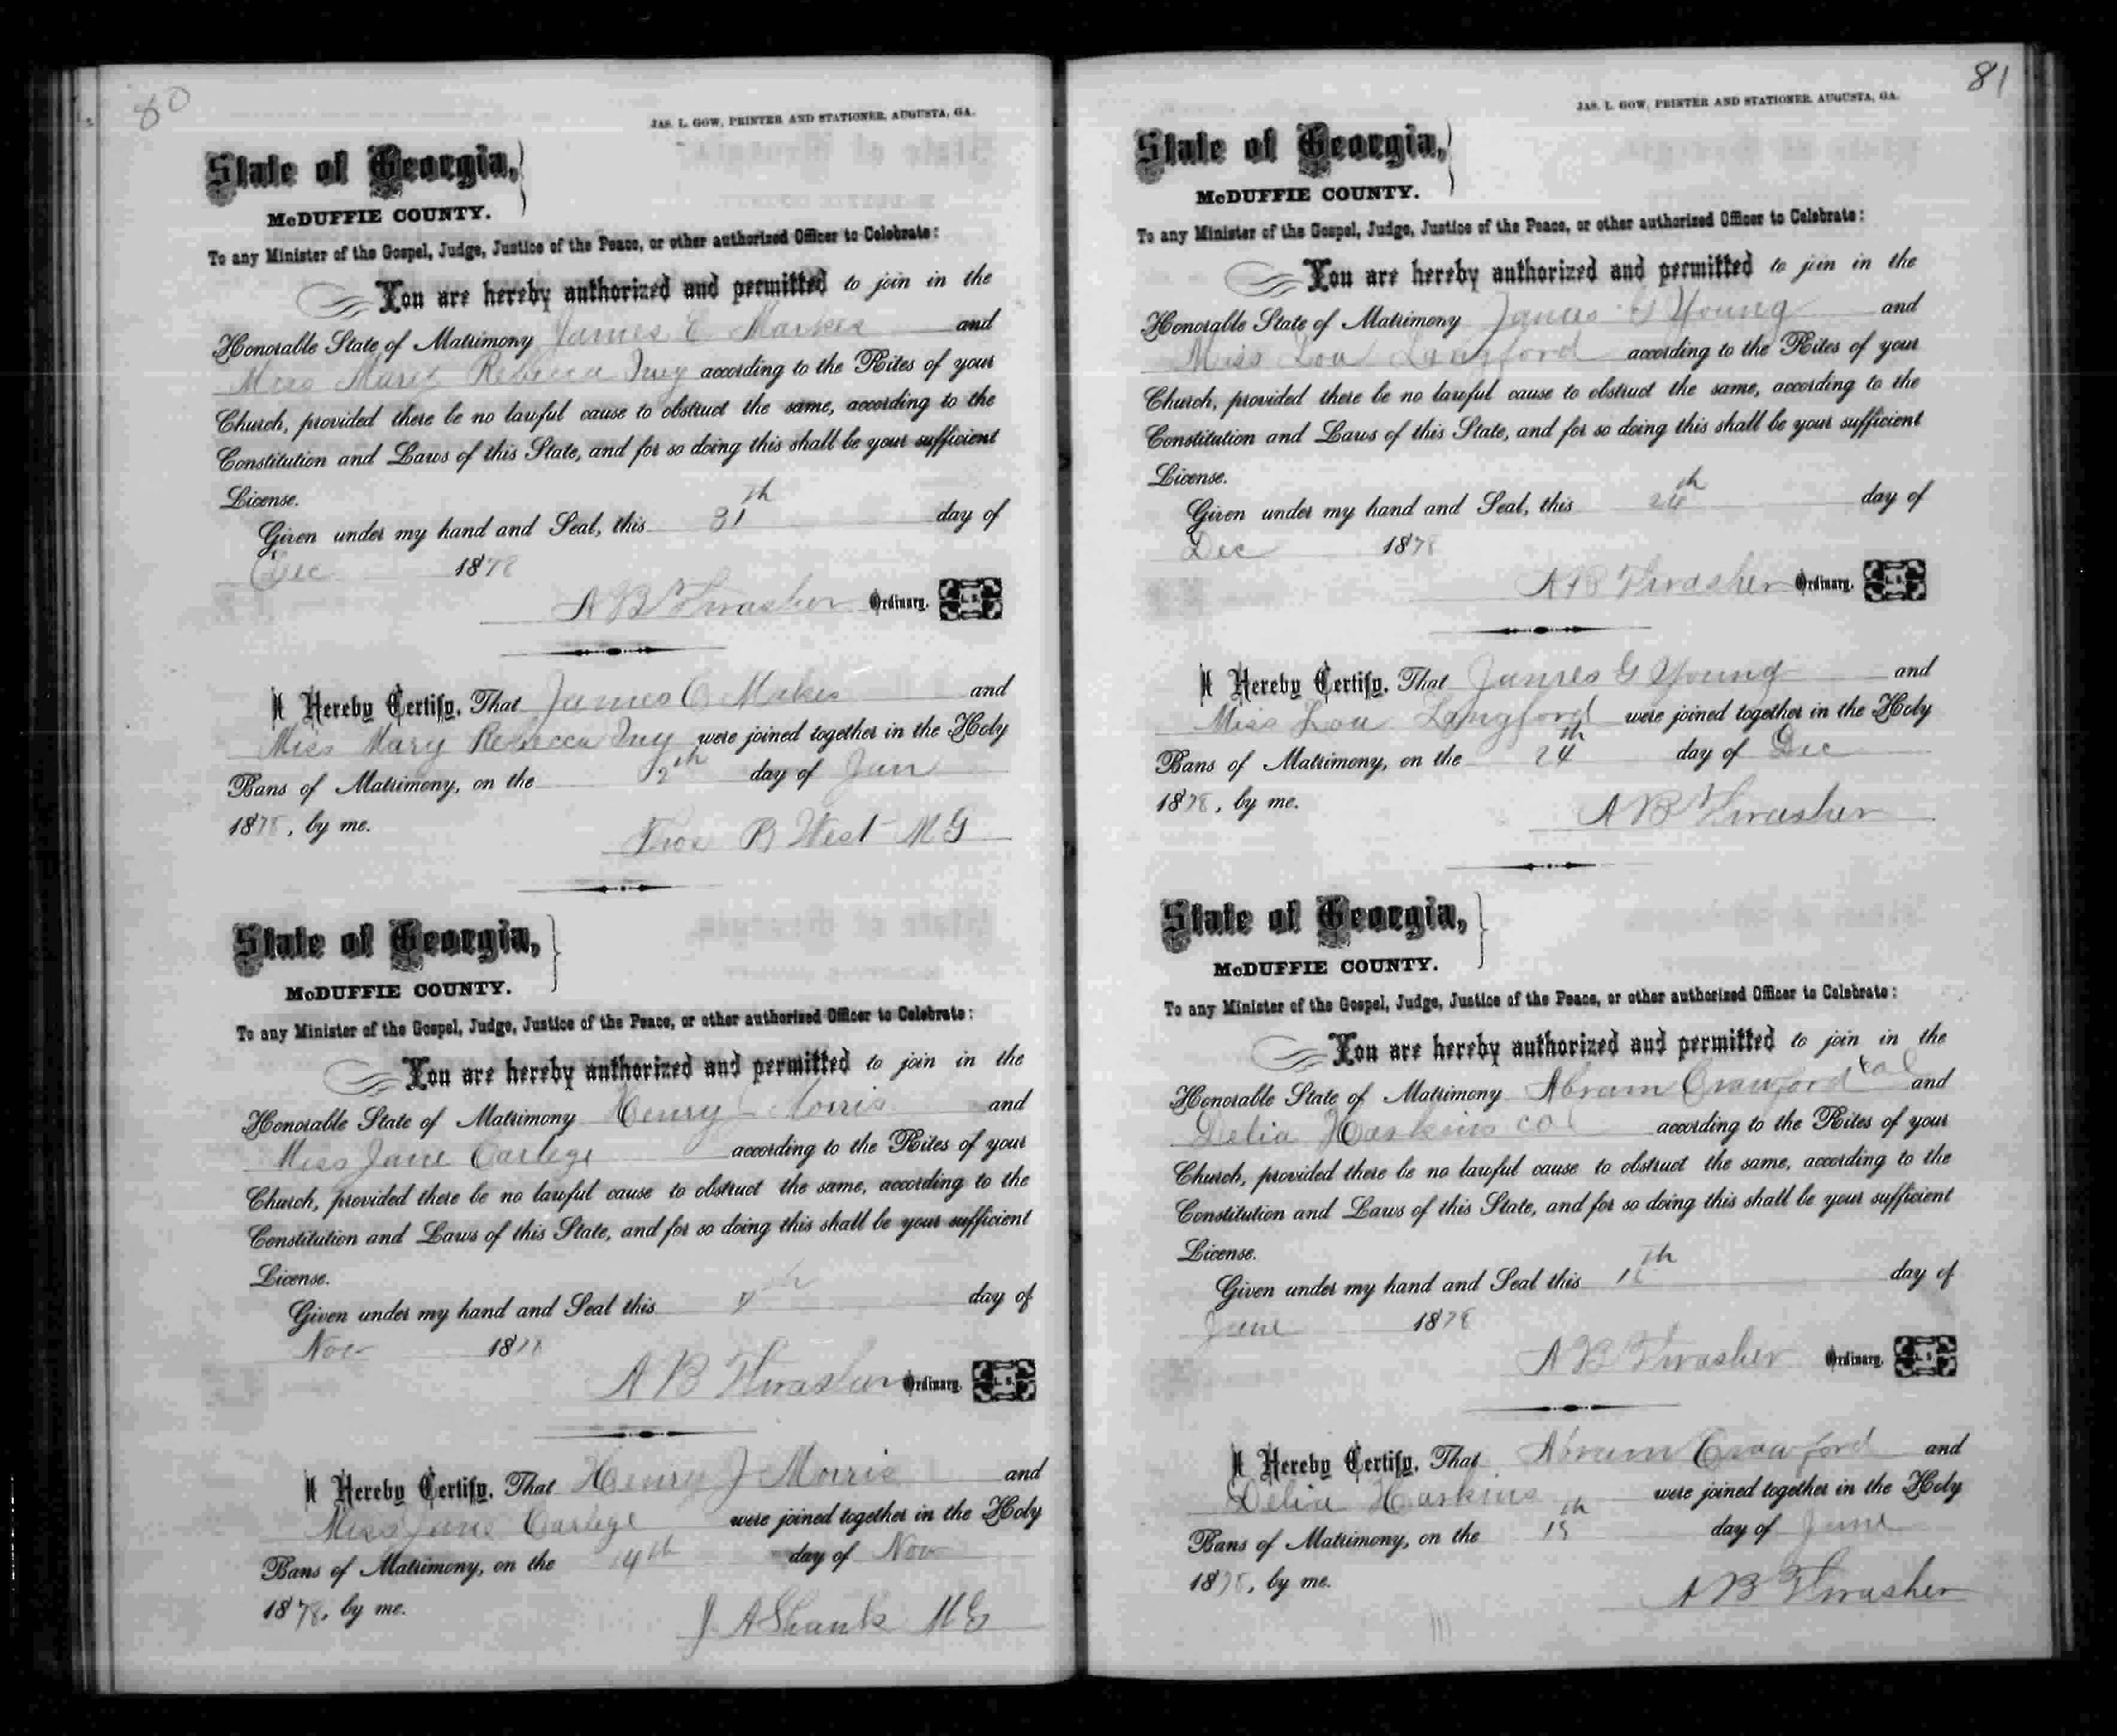 80
JAS. L. GOW, PRINTER AND STATIONER, AUGUSTA, GA.
State of Georgia,
McDUFFIE COUNTY.
To any Minister of the Gospel, Judge, Justice of the Peace, or other authorized Officer to Celebrate:
You are hereby authorized and permitted to join in the
Honorable State of Matrimony James E and
Miss Mary Rebecca Ivey according to the Rites of your
Church, provided there be no lawful cause to obstruct the same, according to the
Constitution and Laws of this State, and for so doing this shall be your sufficient
License.
Given under my hand and Seal, this 31th day of
Dec 1878
A B Thrasher Ordinary. L. S.
I Hereby Certify, That James and
Miss Mary Rebecca Ivey were joined together in the Holy
Bans of Matrimony, on the 2th day of Jan
1878, by me.
Thos B West M G
State of Georgia,
McDUFFIE COUNTY.
To any Minister of the Gospel, Judge, Justice of the Peace, or other authorized Officer to Celebrate:
You are hereby authorized and permitted to join in the
Honorable State of Matrimony Henry Morris and
Miss Jane Carlege according to the Rites of your
Church, provided there be no lawful cause to obstruct the same, according to the
Constitution and Laws of this State, and for so doing this shall be your sufficient
License.
Given under my hand and Seal this th day of
Nov 1878
A B Thrasher Ordinary. L. S.
I Hereby Certify, That Henry J Morris and
Miss Jane Carlege were joined together in the Holy
Bans of Matrimony, on the 14th day of Nov
1878, by me.
J A Shank M G
81
JAS. L. GOW, PRINTER AND STATIONER, AUGUSTA, GA.
State of Georgia,
McDUFFIE COUNTY.
To any Minister of the Gospel, Judge, Justice of the Peace, or other authorized Officer to Celebrate:
You are hereby authorized and permitted to join in the
Honorable State of Matrimony James G Young and
Miss Lou Langford according to the Rites of your
Church, provided there be no lawful cause to obstruct the same, according to the
Constitution and Laws of this State, and for so doing this shall be your sufficient
License.
Given under my hand and Seal, this 24th day of
Dec 1878
A B Thrasher Ordinary. L. S.
I Hereby Certify, That James G Young and
Miss Lou Langford were joined together in the Holy
Bans of Matrimony, on the 24th day of Dec
1878, by me.
A B Thrasher
State of Georgia,
McDUFFIE COUNTY.
To any Minister of the Gospel, Judge, Justice of the Peace, or other authorized Officer to Celebrate:
You are hereby authorized and permitted to join in the
Honorable State of Matrimony Abram Crawford col and
Delia Haskins col according to the Rites of your
Church, provided there be no lawful cause to obstruct the same, according to the
Constitution and Laws of this State, and for so doing this shall be your sufficient
License.
Given under my hand and Seal this day of
June 1878
A B Thrasher Ordinary. L. S.
I Hereby Certify, That Abram Crawford and
Delia Haskins were joined together in the Holy
Bans of Matrimony, on the 15th day of June
1878, by me.
A B Thrasher